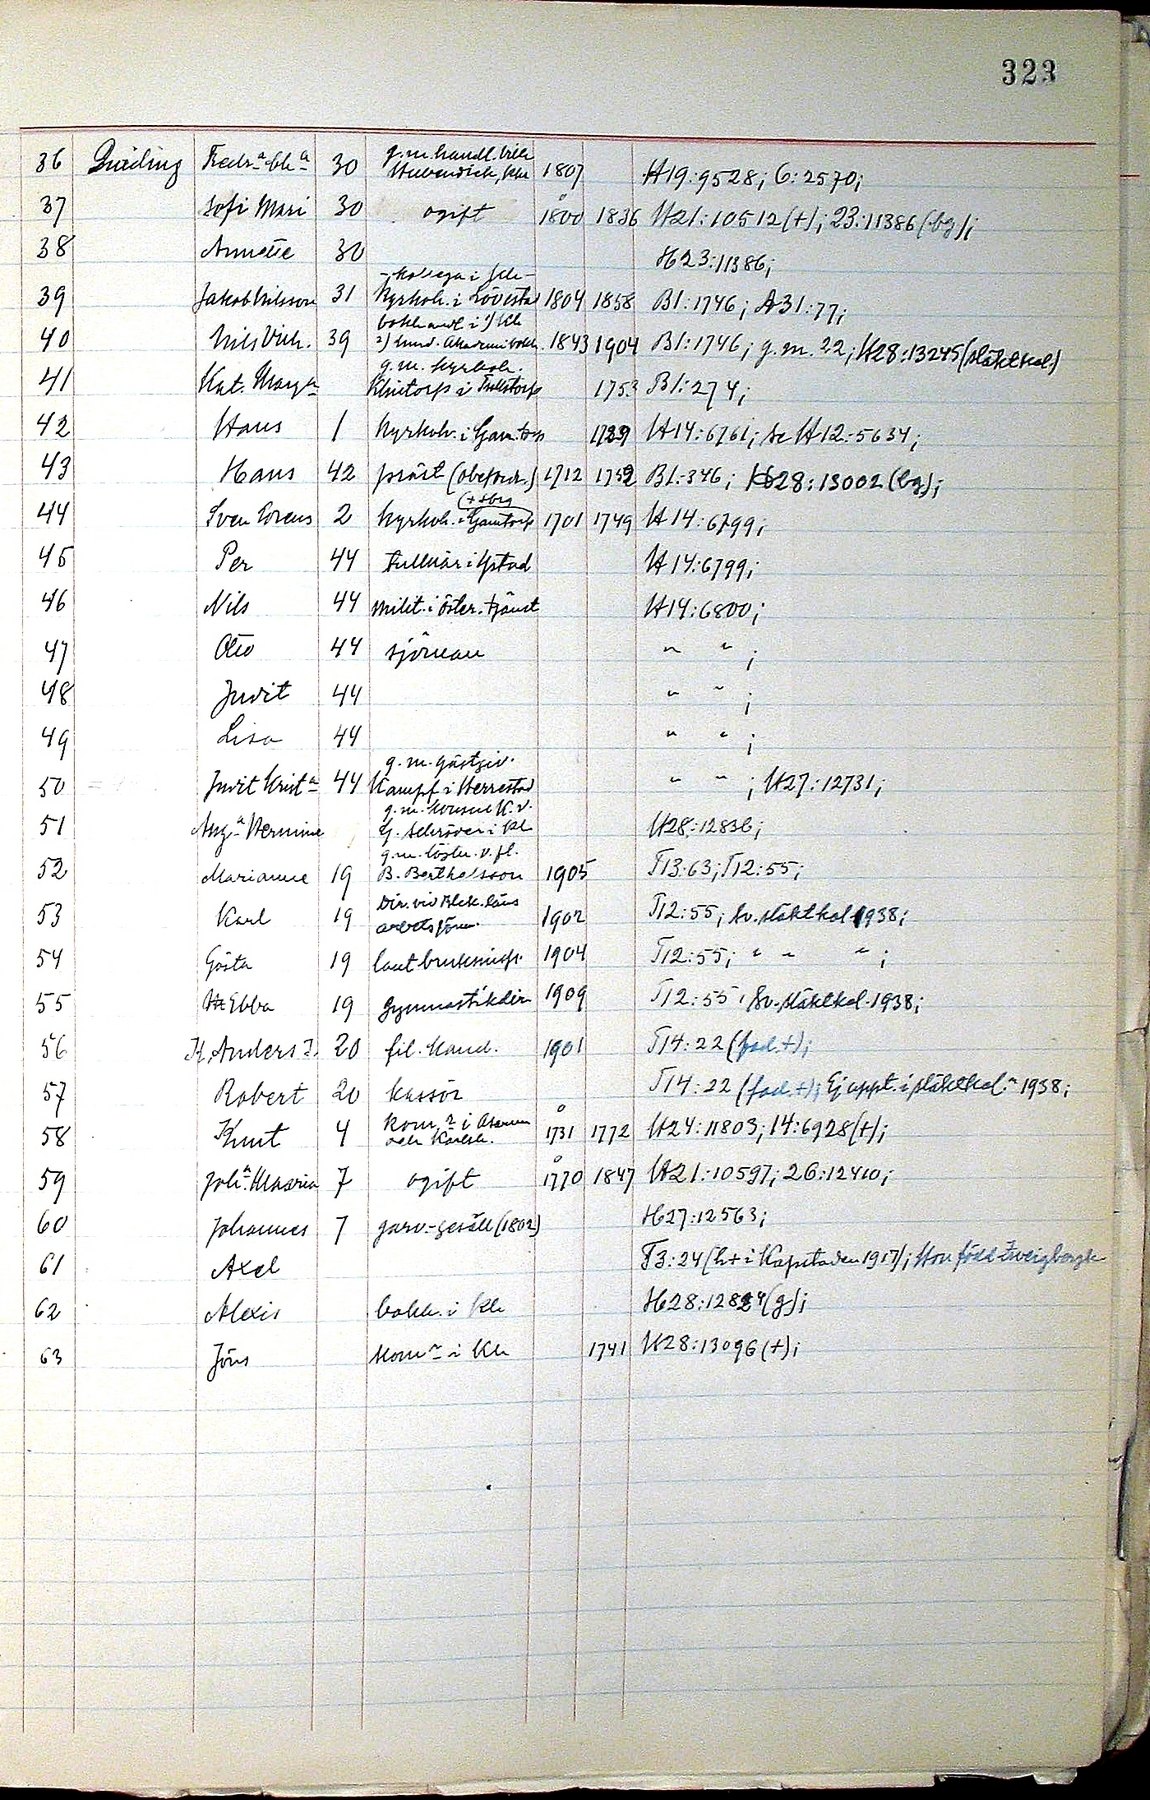 323
36 Quiding Fredr.a 30 g.m. handl. 1807 H19:9528; 6:2570;
37 Sofi Mari 30 ogift 1800 1836 H21:10512(+); 23:11386(bg);
38 Annette 30 H23:11386;
39 Jakob Nilsson 31 kollega i kyrkoh. i Lövestad 1804 1858 B1:1746; A31:77;
40 Nils Vilh. 39 bokhandl i 1) Kh
2) Lund. Akademibokh. 1843 1904 B1:1746; g.m. 22; H28:13245 (släktkal)
41 Kat. Marg.a g.m. kyrkoh.
Klintorp i Tullstorp 1753 B1:274;
42 Hans 1 kyrkoh. i Gam.torp 1729 H14:6761; se H12:5634;
43 Hans 42 präst (obeford.) 1712 1752 B1:346; H28:13002 (bg);
44 Sven Lorens 2 kyrkoh. i Gamtorp (++bg 1701 1749 H14:6799;
45 Per 44 tullnär i Ystad H14:6799;
46 Nils 44 milit. i öster. tjänst H14:6800;
47 Otto 44 sjöman " " ;
48 Judit 44 " " ;
49 Lisa 44 " " ;
50 Judit Krist.a 44 g.m. gästgiv.
Kampf i Herrestad " " ; H27:12731;
51 Aug.a Hermine g.m. konsul K.v.
i Kh H28:12836;
52 Marianne 19 g.m. löjtn. v. fl.
B. Bertholsson 1905 T13:63; T12:55;
53 Karl 19 Dir. vid Blek. läns
arbetsförm. 1902 T12:55; Sv. släktkal 1938;
54 Gösta 19 lantbruksinsp. 1904 T12:55; " " " ;
55 Ebba 19 Gymnastikdir 1909 T12:55; Sv. släktkal. 1938;
56 K. Anders J. 20 fil. kand. 1901 T14:22 (fad. +);
57 Robert 20 kassör T14:22 (fad. +); Ej uppt. i släktkal. 1938;
58 Knut 4 kom.r i Asarum
och Karlsh. 1731 1772 H24:11803; 14:6928(+);
59 Joh.a Maria 7 ogift 1770 1847 H21:10597; 26:12410;
60 Johannes 7 garv-gesäll (1802) H27:12563;
61 Axel T3:24 (h+ i Kapstaden 1917); Hon född Zweigbergk
62 Alexis bokh. i Kh H28:12824(g);
63 Jöns kom.r i Kh 1741 H28:13096(+);